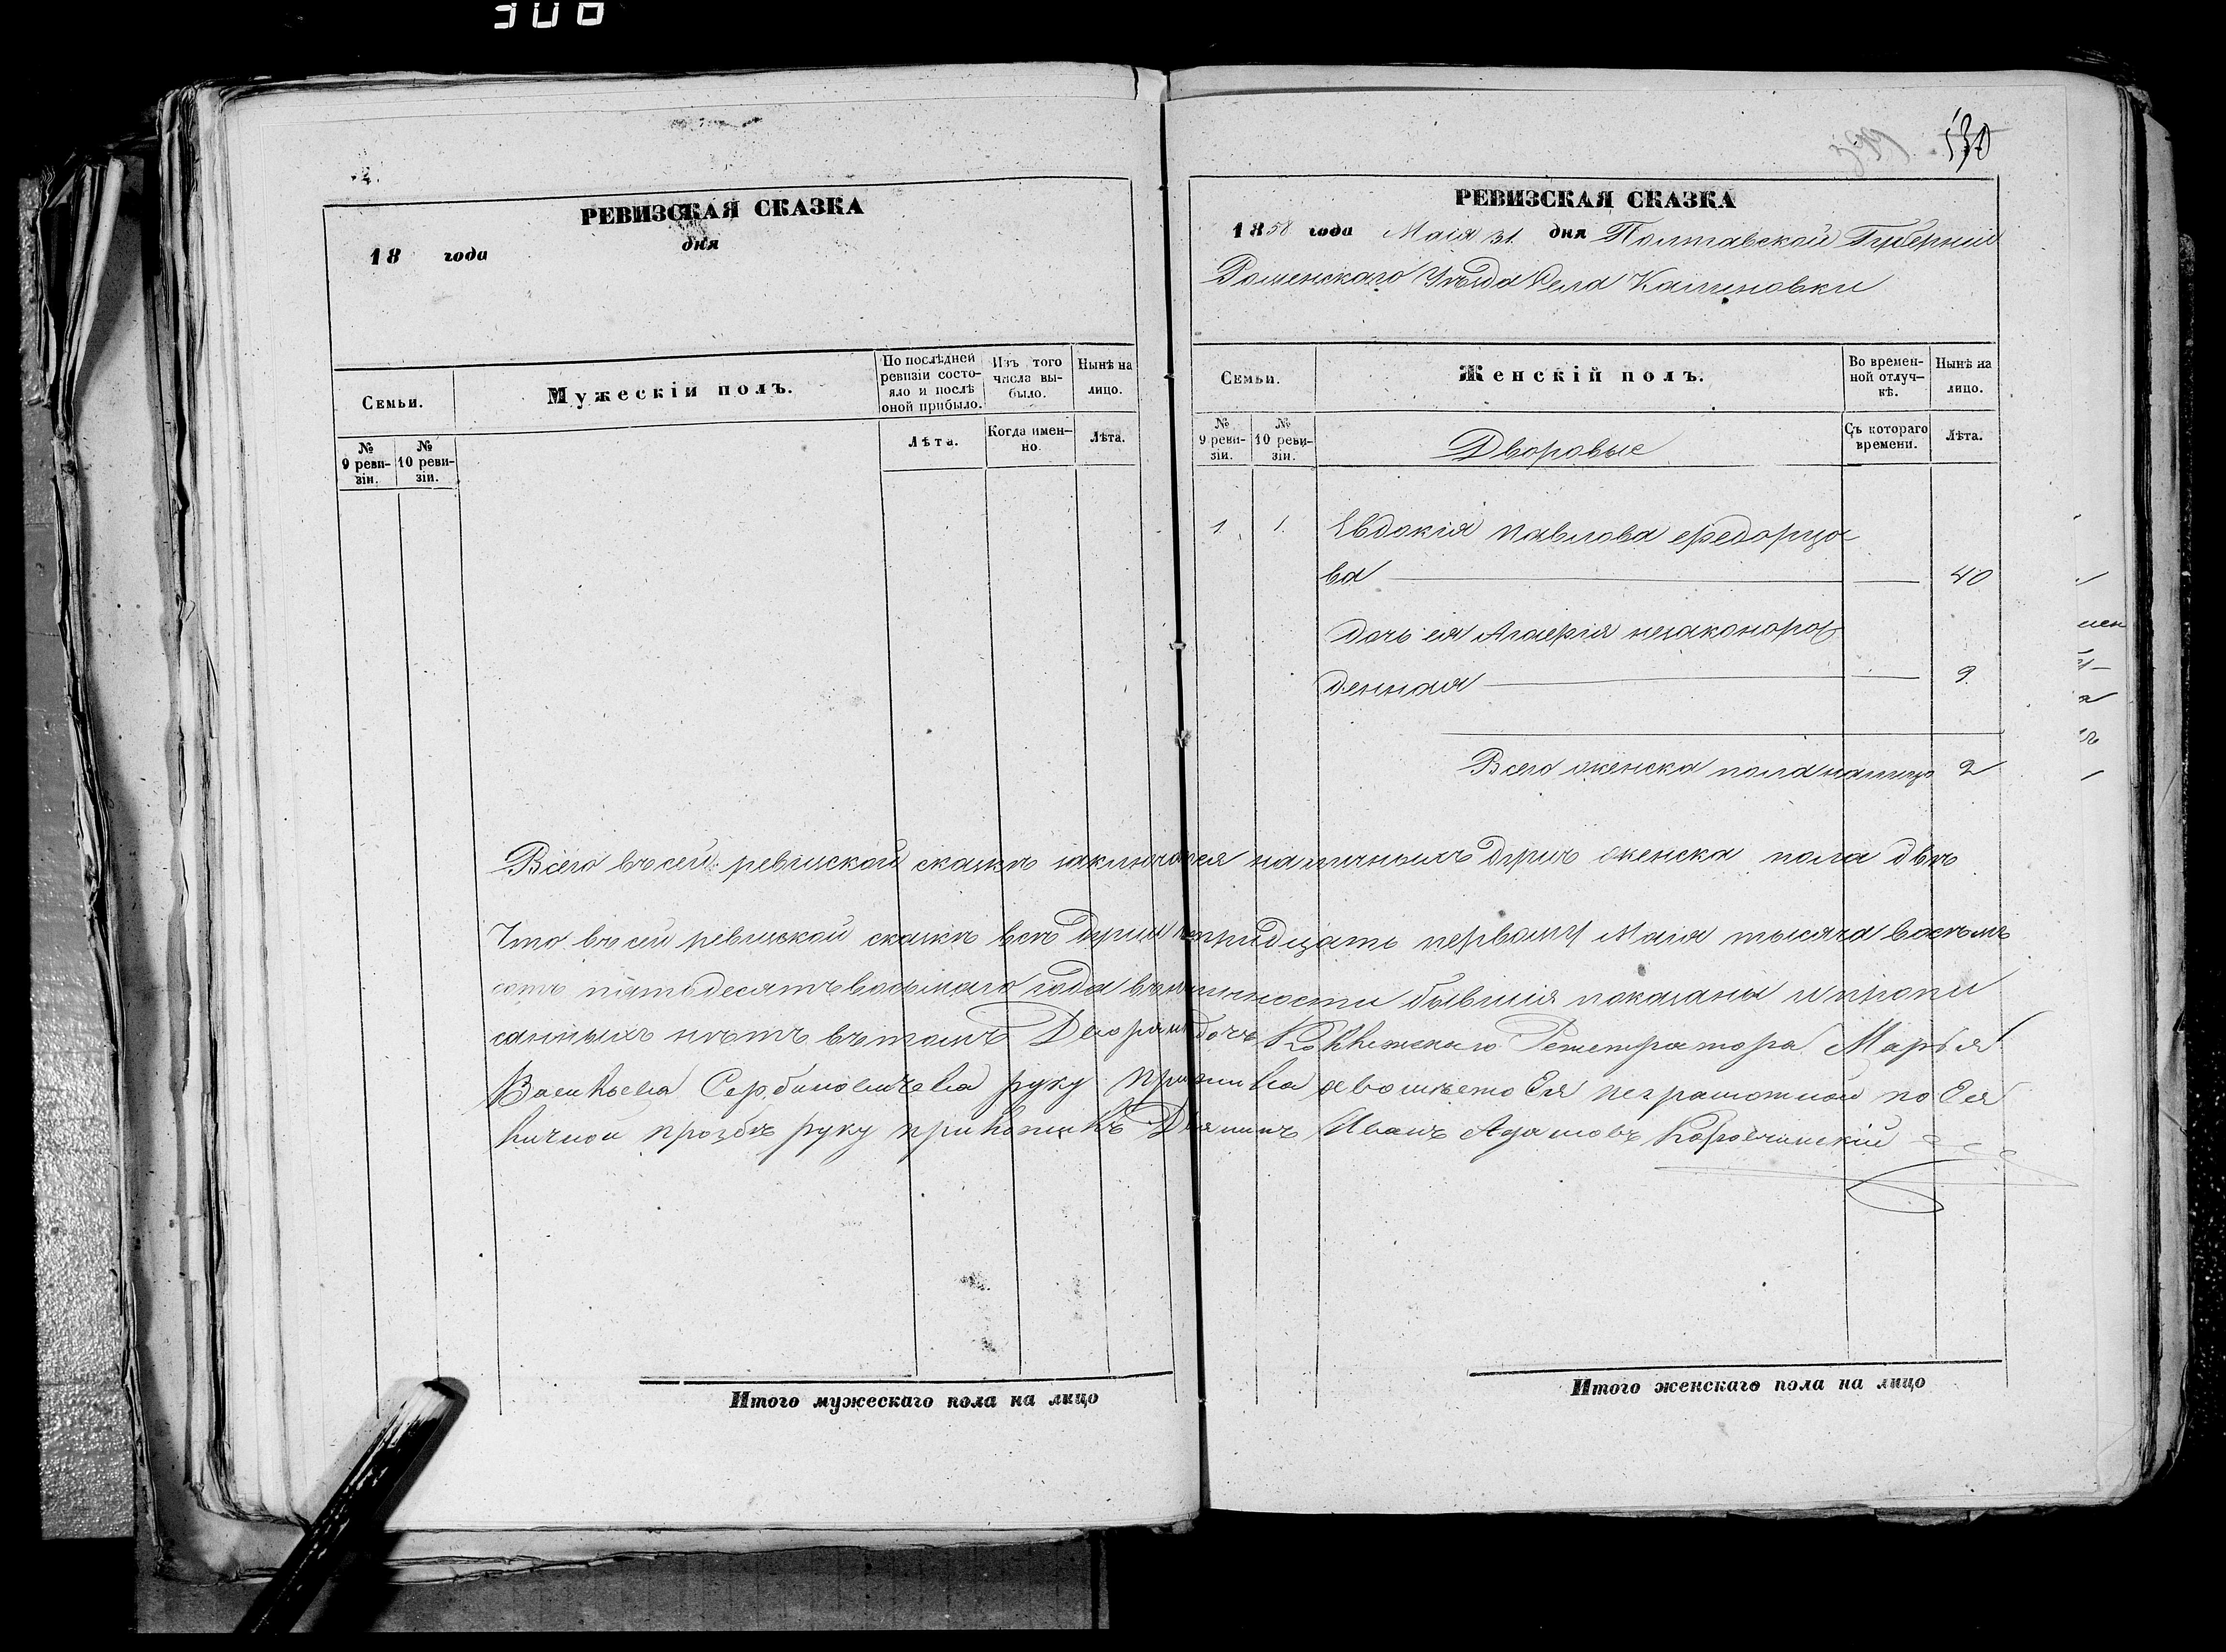 РЕВИЗСКАЯ СКАЗКА
18 года дня
Семьи.
Мужескій полъ.
По послѣдней ревизіи состояло и послѣ оной прибыло.
Изъ того числа выбыло.
Нынѣ на лицо.
№ 9 ревизіи.
№ 10 ревизіи.
Лѣта.
Когда именно.
Лѣта.
Итого мужескаго пола на лицо
530
РЕВИЗСКАЯ СКАЗКА
1858 года Маія 31 дня Полтавской Губерніи
Роменскаго Уѣзда Села Калиновки
Семьи.
Женскій полъ.
Во временной отлучкѣ.
Нынѣ на лицо.
№ 9 ревизіи.
№ 10 ревизіи.
Дворовые
Съ котораго времени.
Лѣта.
1. 1. Евдокія Павлова Федорцо
ва — — 40
дочь ея Агафія незаконорож
денная — — 9.
Всего женска пола налицо 2
Всего въ сей ревизской сказкѣ заключается наличныхъ душъ женска пола двѣ
Что въ сей ревизской сказкѣ всѣ души по тридцать первому Маія тысяча восемь
сотъ пятьдесятъ восьмаго года въ наличности бывшія показаны и пропи
санныхъ нѣтъ въ томъ Дочь Коллежскаго Регистратора Марья
Васильева Сербиновичева руку приложила а вомѣсто Ея неграмотной по Ея
личной прозбѣ руку приложилъ Дворянинъ Иванъ Адамовъ
Итого женскаго пола на лицо